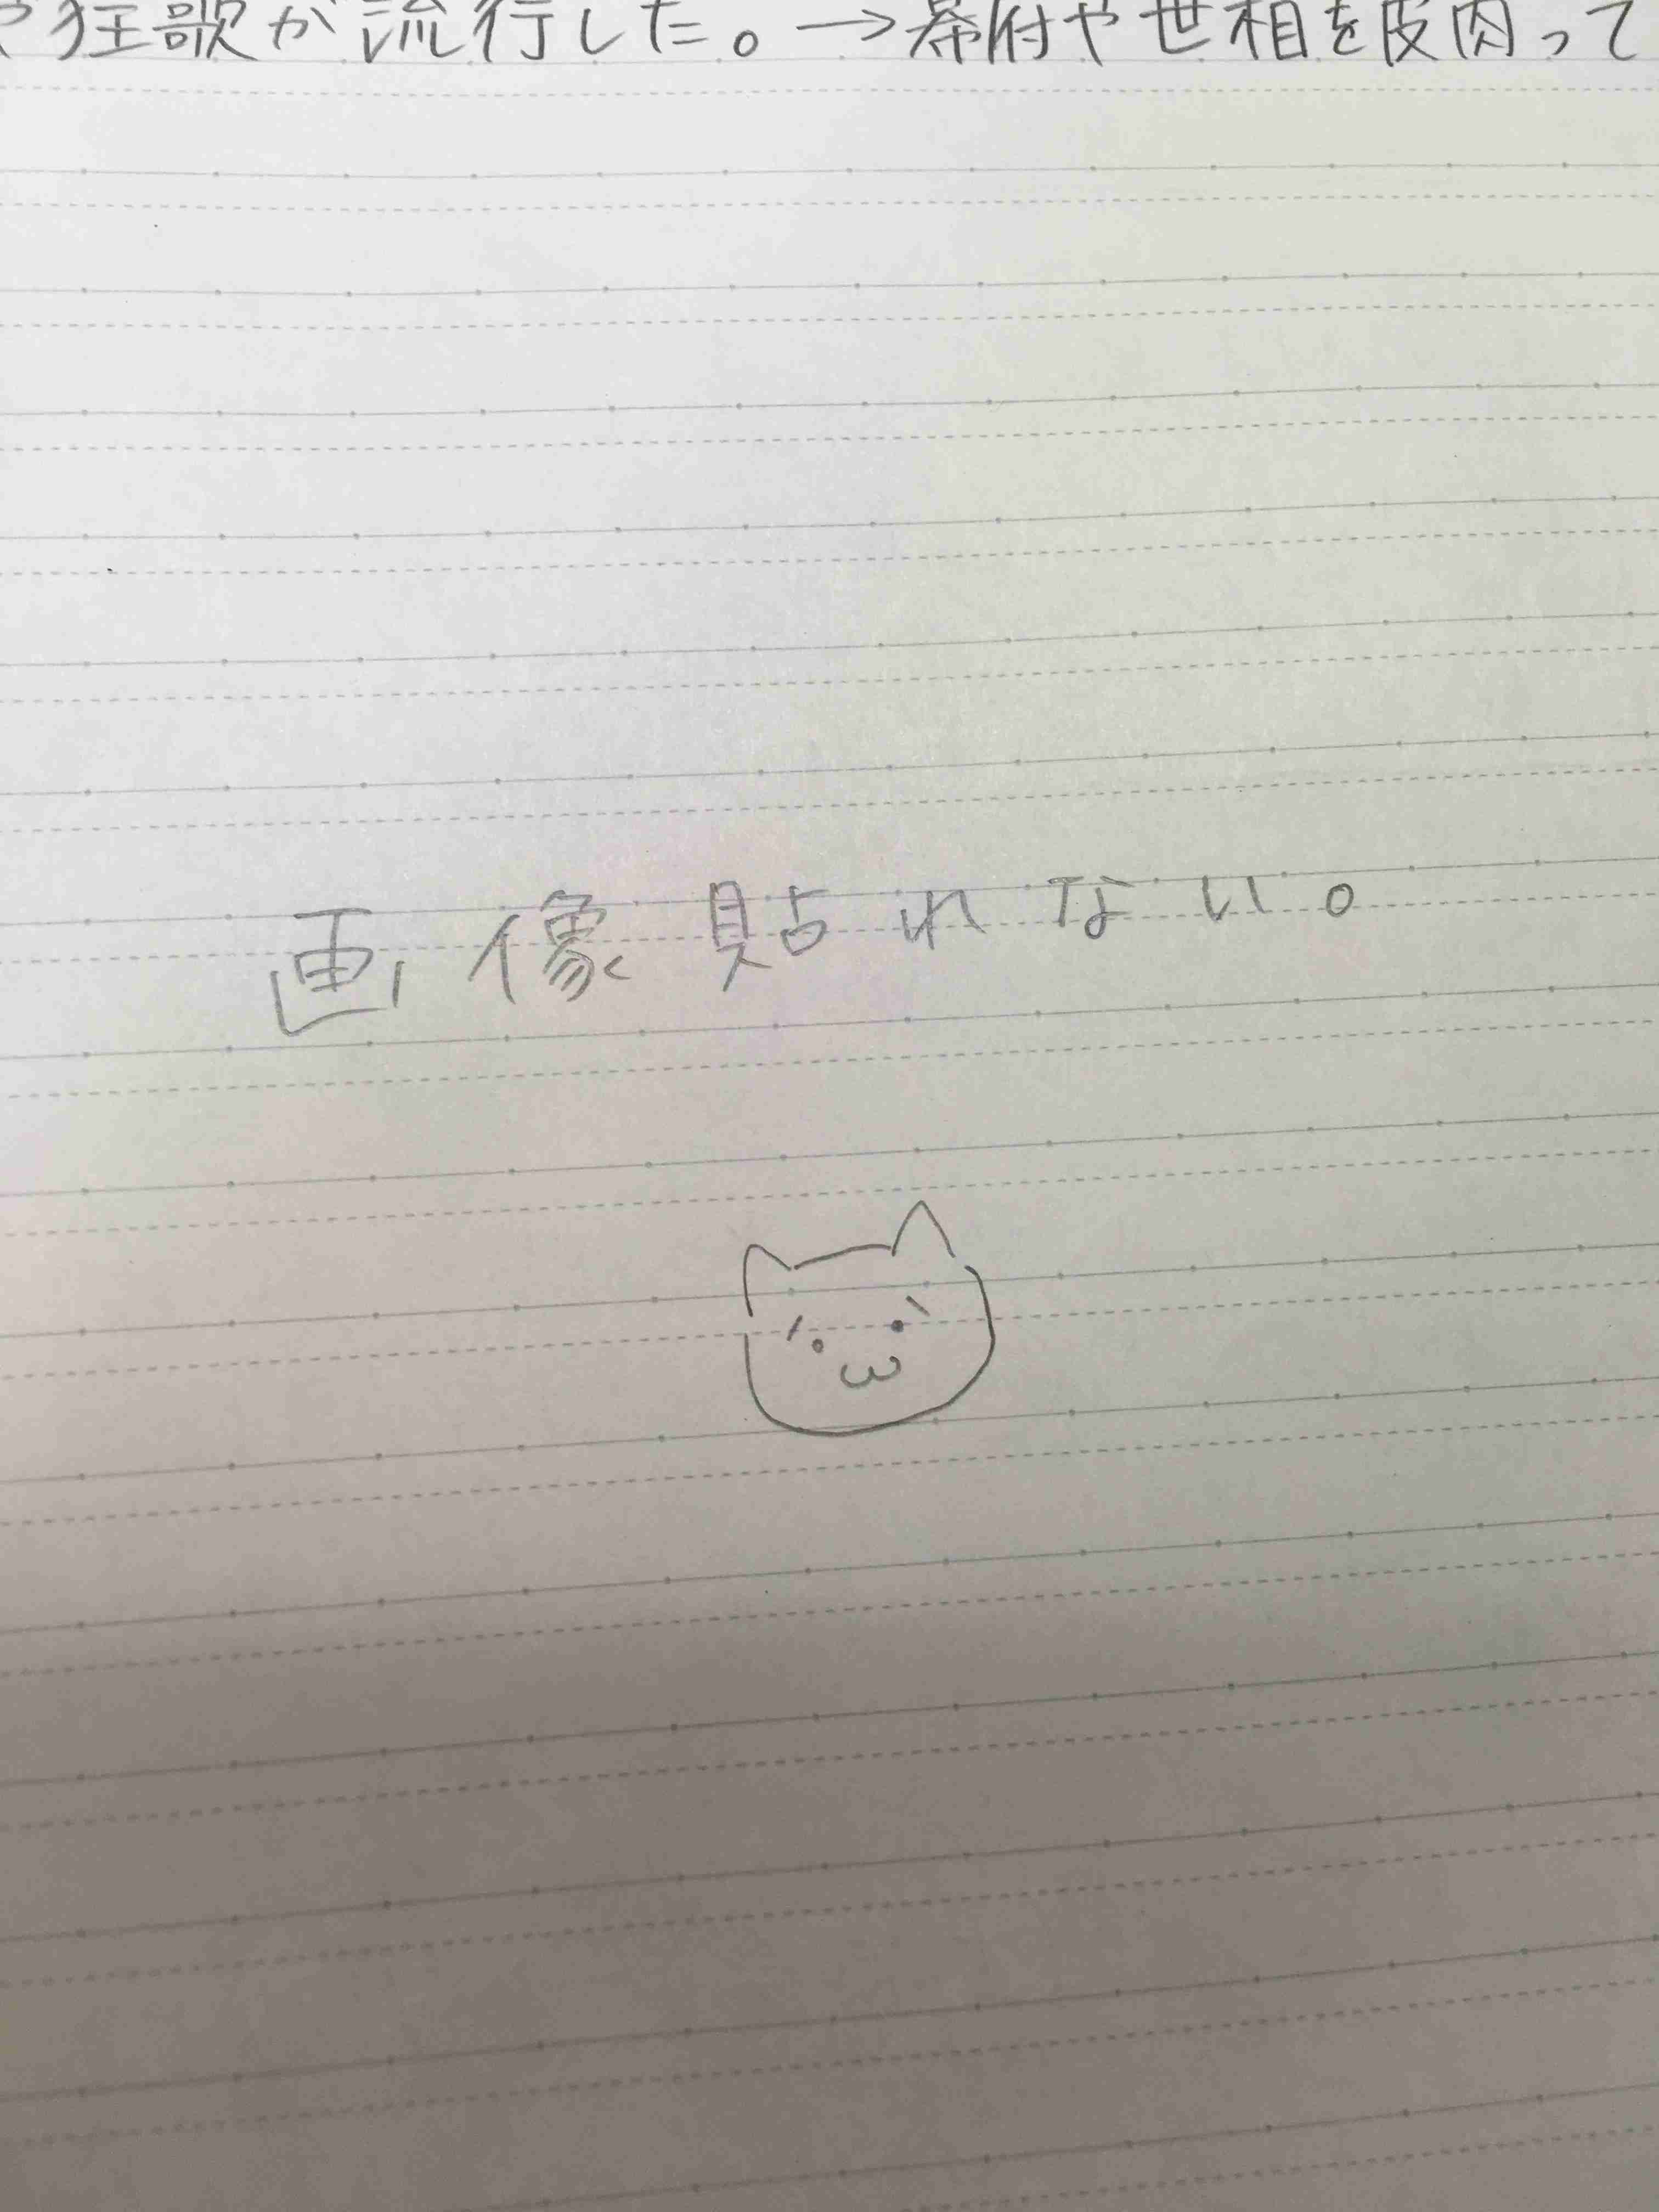 や狂歌が流行した。→幕府や世相を皮肉って
画像貼れない。